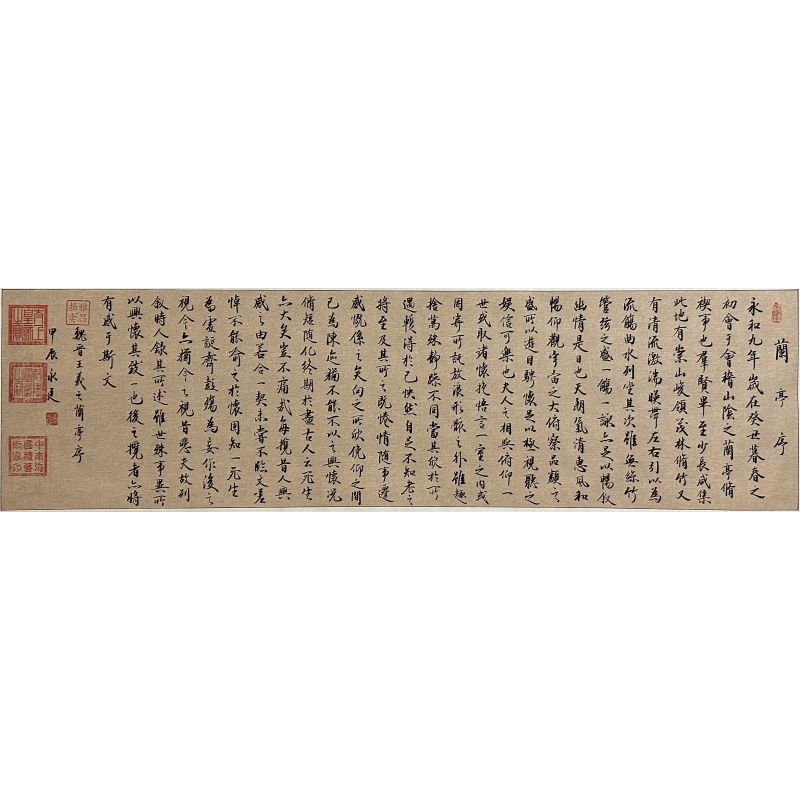 蘭亭序
永和九年歲在癸丑暮春之
初會于會稽山陰之蘭亭脩
禊事也羣賢畢至少長咸集
此地有崇山峻領茂林脩竹又
有清流激湍暎帶左右引以為
流觴曲水列坐其次雖無絲竹
管弦之盛一觴一詠亦足以暢敘
幽情是日也天朗氣清惠風和
暢仰觀宇宙之大俯察品類之
盛所以遊目騁懷足以極視聽之
娛信可樂也夫人之相與俯仰一
世或取諸懷抱悟言一室之內或
因寄所託放浪形骸之外雖趣
捨萬殊靜躁不同當其欣於所
遇暫得於己快然自足不知老之
將至及其所之既惓情隨事遷
感慨係之矣向之所欣俛仰之間
已為陳迹猶不能不以之興懷況
脩短隨化終期於盡古人云死生
亦大矣豈不痛哉每攬昔人興
感之由若合一契未嘗不臨文嗟
悼不能喻之於懷固知一死生
為虛誕齊彭殤為妄作後之
視今亦猶今之視昔悲夫故列
敘時人錄其所述雖世殊事異所
以興懷其致一也後之攬者亦將
有感于斯文
魏晉王羲之蘭亭序
甲辰永廷
中南海
國禮藝
術家印